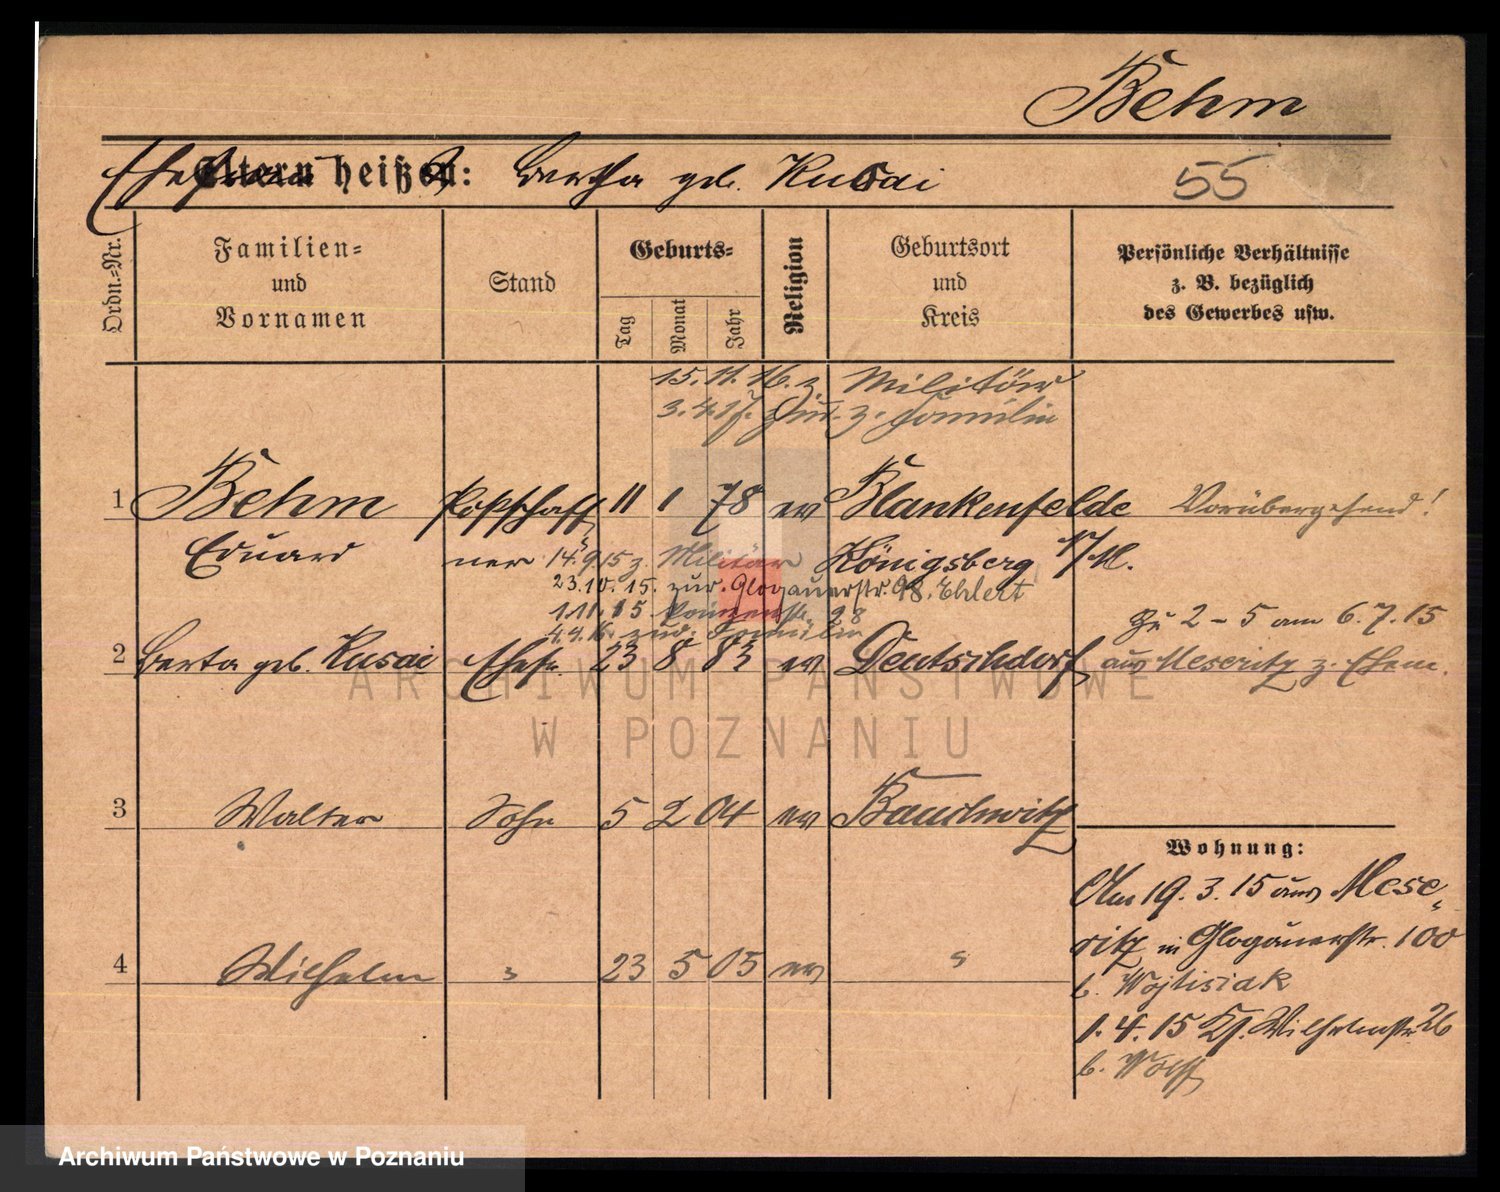 Behm
Eltern heißen: Ehefr. Bertha geb. Kusai
55
Ordn.=Nr.
Familien=
und
Vornamen
Stand
Geburts=
Tag
Monat
Jahr
Religion
Geburtsort
und
Kreis
Persönliche Verhältnisse
z. B. bezüglich
des Gewerbes usw.
15. 11. 16. z. Militär
3. 4. 17. zur. z. Familie
1 Behm Postschaff 11 1 78 ev Blankenfelde Vorübergehend!
Eduard ner 14. 9. 15 z. Militär Königsberg N/M.
23. 10. 15. zur. Glogauerstr. 98. Ehlert
1. 11. 15 28
4. 4. 16. zur. Familie
Zu 2 - 5 am 6. 7. 15
2 Berta geb. Kusai Ehefr. 23 8 83 ev Deutschdorf aus Meseritz z. Ehem.
3 Walter Sohn 5 2 04 ev Bauchwitz
4 Wilhelm " 23 5 05 ev "
Wohnung:
Am 19. 3. 15 aus Mese=
ritz in Glogauerstr. 100
b. Wojtisiak
1. 4. 15 Kl. Wilhelmstr 26
b. Wolff
ARCHIWUM PAŃSTWOWE
W POZNANIU
Archiwum Państwowe w Poznaniu